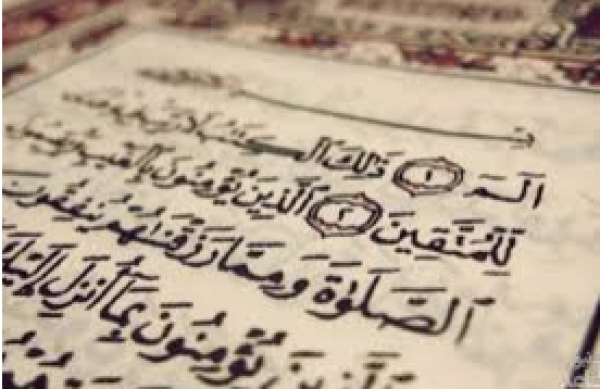 الٓمٓ ١ ذَٰلِكَ الْكِتَٰبُ لَا رَيْبَ فِيهِ
لِلْمُتَّقِينَ ٢ الَّذِينَ يُؤْمِنُونَ بِالْغَيْبِ وَيُقِيمُونَ
الصَّلَوٰةَ وَمِمَّا رَزَقْنَٰهُمْ يُنفِقُونَ
وَالَّذِينَ يُؤْمِنُونَ بِمَا أُنزِلَ إِلَيْكَ